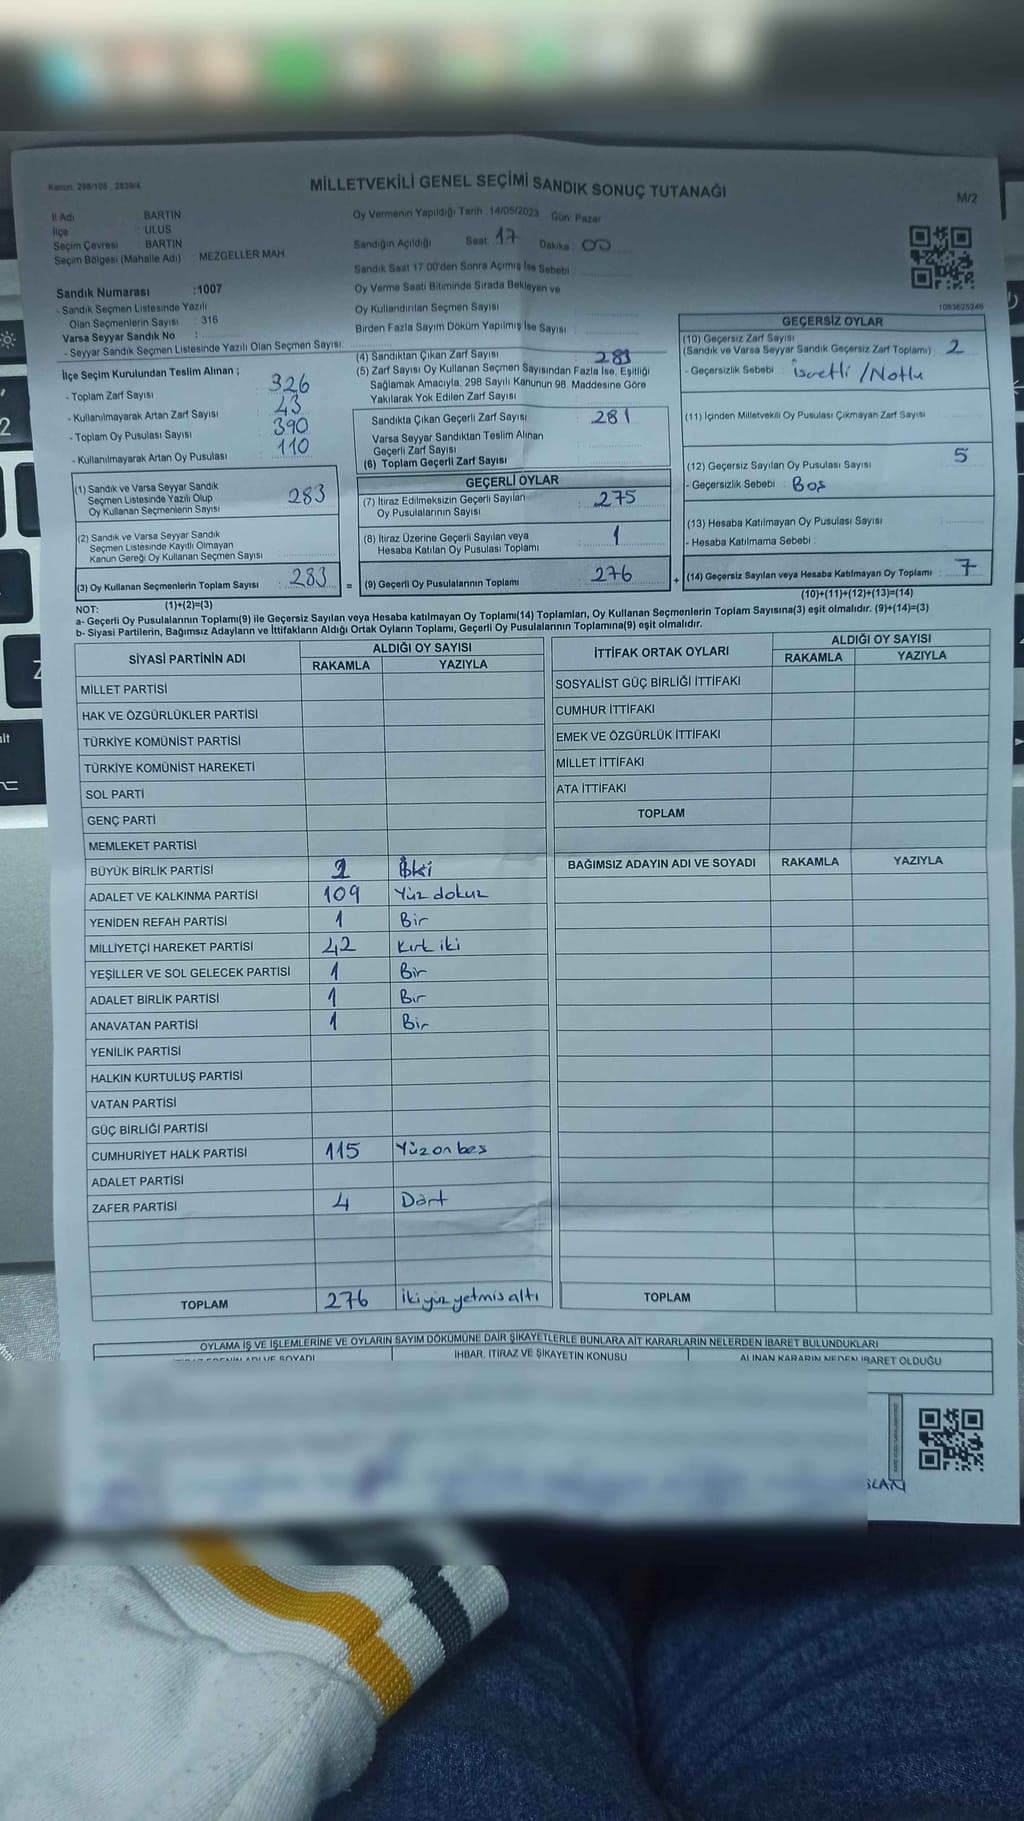 Kanun: 298/105 , 2839/4
MİLLETVEKİLİ GENEL SEÇİMİ SANDIK SONUÇ TUTANAĞI
M/2
İl Adı BARTIN
İlçe ULUS
Seçim Çevresi BARTIN
Seçim Bölgesi (Mahalle Adı) MEZGELLER MAH.
Oy Vermenin Yapıldığı Tarih :14/05/2023 Gün: Pazar
Sandığın Açıldığı Saat: 17 Dakika: 00
Sandık Saat 17:00'den Sonra Açımış İse Sebebi:
Oy Verme Saati Bitiminde Sırada Bekleyen ve
Oy Kullandırılan Seçmen Sayısı
Birden Fazla Sayım Döküm Yapılmış İse Sayısı :
Sandık Numarası :1007
- Sandık Seçmen Listesinde Yazılı
Olan Seçmenlerin Sayısı : 316
Varsa Seyyar Sandık No :
- Seyyar Sandık Seçmen Listesinde Yazılı Olan Seçmen Sayısı:
İlçe Seçim Kurulundan Teslim Alınan ;
- Toplam Zarf Sayısı : 326
- Kullanılmayarak Artan Zarf Sayısı : 43
- Toplam Oy Pusulası Sayısı : 390
- Kullanılmayarak Artan Oy Pusulası : 110
(1) Sandık ve Varsa Seyyar Sandık
Seçmen Listesinde Yazılı Olup
Oy Kullanan Seçmenlerin Sayısı : 283
(2) Sandık ve Varsa Seyyar Sandık
Seçmen Listesinde Kayıtlı Olmayan
Kanun Gereği Oy Kullanan Seçmen Sayısı
(3) Oy Kullanan Seçmenlerin Toplam Sayısı : 283
(1)+(2)=(3)
(4) Sandıktan Çıkan Zarf Sayısı : 283
(5) Zarf Sayısı Oy Kullanan Seçmen Sayısından Fazla İse, Eşitliği
Sağlamak Amacıyla, 298 Sayılı Kanunun 98. Maddesine Göre
Yakılarak Yok Edilen Zarf Sayısı
Sandıkta Çıkan Geçerli Zarf Sayısı : 281
Varsa Seyyar Sandıktan Teslim Alınan
Geçerli Zarf Sayısı
(6) Toplam Geçerli Zarf Sayısı
GEÇERLİ OYLAR
(7) İtiraz Edilmeksizin Geçerli Sayılan
Oy Pusulalarının Sayısı : 275
(8) İtiraz Üzerine Geçerli Sayılan veya
Hesaba Katılan Oy Pusulası Toplamı : 1
= (9) Geçerli Oy Pusulalarının Toplamı : 276
1083625246
GEÇERSİZ OYLAR
(10) Geçersiz Zarf Sayısı
(Sandık ve Varsa Seyyar Sandık Geçersiz Zarf Toplamı) : 2
- Geçersizlik Sebebi : işretli /Notlu
(11) İçinden Milletvekili Oy Pusulası Çıkmayan Zarf Sayısı
(12) Geçersiz Sayılan Oy Pusulası Sayısı : 5
- Geçersizlik Sebebi : Boş
(13) Hesaba Katılmayan Oy Pusulası Sayısı
- Hesaba Katılmama Sebebi :
+ (14) Geçersiz Sayılan veya Hesaba Katılmayan Oy Toplamı : 7
(10)+(11)+(12)+(13)=(14)
NOT:
a- Geçerli Oy Pusulalarının Toplamı(9) ile Geçersiz Sayılan veya Hesaba katılmayan Oy Toplamı(14) Toplamları, Oy Kullanan Seçmenlerin Toplam Sayısına(3) eşit olmalıdır. (9)+(14)=(3)
b- Siyasi Partilerin, Bağımsız Adayların ve İttifakların Aldığı Ortak Oyların Toplamı, Geçerli Oy Pusulalarının Toplamına(9) eşit olmalıdır.
SİYASİ PARTİNİN ADI ALDIĞI OY SAYISI
RAKAMLA YAZIYLA
MİLLET PARTİSİ
HAK VE ÖZGÜRLÜKLER PARTİSİ
TÜRKİYE KOMÜNİST PARTİSİ
TÜRKİYE KOMÜNİST HAREKETİ
SOL PARTİ
GENÇ PARTİ
MEMLEKET PARTİSİ
BÜYÜK BİRLİK PARTİSİ 2 İki
ADALET VE KALKINMA PARTİSİ 109 Yüz dokuz
YENİDEN REFAH PARTİSİ 1 Bir
MİLLİYETÇİ HAREKET PARTİSİ 42 Kırk iki
YEŞİLLER VE SOL GELECEK PARTİSİ 1 Bir
ADALET BİRLİK PARTİSİ 1 Bir
ANAVATAN PARTİSİ 1 Bir
YENİLİK PARTİSİ
HALKIN KURTULUŞ PARTİSİ
VATAN PARTİSİ
GÜÇ BİRLİĞİ PARTİSİ
CUMHURİYET HALK PARTİSİ 115 Yüz on beş
ADALET PARTİSİ
ZAFER PARTİSİ 4 Dört
TOPLAM 276 iki yüz yetmiş altı
İTTİFAK ORTAK OYLARI ALDIĞI OY SAYISI
RAKAMLA YAZIYLA
SOSYALİST GÜÇ BİRLİĞİ İTTİFAKI
CUMHUR İTTİFAKI
EMEK VE ÖZGÜRLÜK İTTİFAKI
MİLLET İTTİFAKI
ATA İTTİFAKI
TOPLAM
BAĞIMSIZ ADAYIN ADI VE SOYADI RAKAMLA YAZIYLA
TOPLAM
OYLAMA İŞ VE İŞLEMLERİNE VE OYLARIN SAYIM DÖKÜMÜNE DAİR ŞİKAYETLERLE BUNLARA AİT KARARLARIN NELERDEN İBARET BULUNDUKLARI
ADI VE SOYADI İHBAR, İTİRAZ VE ŞİKAYETİN KONUSU ALINAN KARARIN NEDEN İBARET OLDUĞU